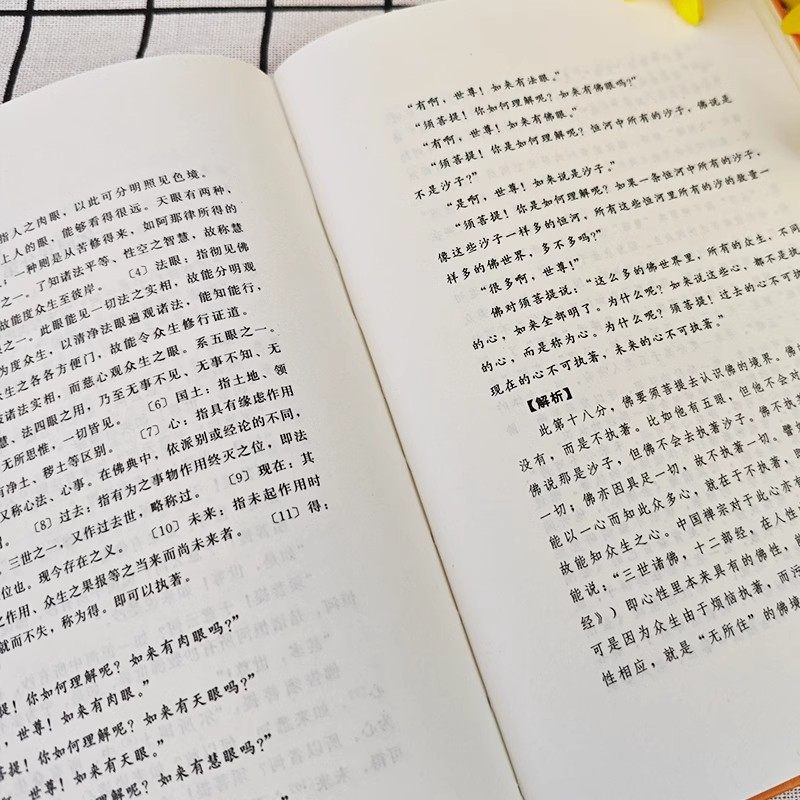 指人之肉眼，以此可分明照见色境。
上人的眼，能够看得很远。天眼有两种，
：一种则是从苦修得来，如阿那律所得的
之一，了知诸法平等、性空之智慧，故称慧
故能度众生至彼岸。〔4〕法眼：指彻见佛
之一。此眼能见一切法之实相，故能分明观
为度众生，以清净法眼遍观诸法，能知能行，
众生之各各方便门，故能令众生修行证道。
诸法实相，而慈心观众生之眼。系五眼之一。
慧、法四眼之用，乃至无事不见、无事不知、无
无所思惟，一切皆见。〔6〕国土：指土地、领
有净土、秽土等区别。〔7〕心：指具有缘虑作用
又称心法、心事。在佛典中，依派别或经论的不同，
〔8〕过去：指有为之事物作用终灭之位，即法
三世之一，又作过去世，略称过。〔9〕现在：其
位也。现今存在之义。〔10〕未来：指未起作用时
之作用、众生之果报等之当来而尚未来者。〔11〕得：
就而不失，称为得。即可以执著。
提！你如何理解呢？如来有肉眼吗？”
，世尊！如来有肉眼。”
菩提！你如何理解呢？如来有天眼吗？”
世尊！如来有天眼。”
你如何理解呢？如来有慧眼吗？”
“有啊，世尊！如来有法眼。”
“须菩提！你如何理解呢？如来有佛眼吗？”
“有啊，世尊！如来有佛眼。”
“须菩提！你是如何理解呢？恒河中所有的沙子，佛说是
不是沙子？”
“是啊，世尊！如来说是沙子。”
“须菩提！你是如何理解呢？如果一条恒河中所有的沙子，
像这些沙子一样多的恒河，所有这些恒河里所有的沙的数量一
样多的佛世界，多不多吗？”
“很多啊，世尊！”
佛对须菩提说：“这么多的佛世界里，所有的众生，不同
的心，如来全部明了。为什么呢？如来说这些心，都不是执
的心，而是称为心。为什么呢？须菩提！过去的心不可执
现在的心不可执著，未来的心不可执著。”
【解析】
此第十八分，佛要须菩提去认识佛的境界。佛
没有，而是不执著。比如他有五眼，但他不会对
佛说那是沙子，但佛不会去执著沙子。佛不执
一切；佛亦因具足一切，故不执著一切。譬
能以一心而知此众多心，就在于不执著，
故能知众生之心。中国禅宗对于此心亦
能说，“三世诸佛，十二部经，在人性
经》）即心性里本来具有的佛性，
可是因为众生由于烦恼执著，而污
性相应，就是“无所住”的佛境